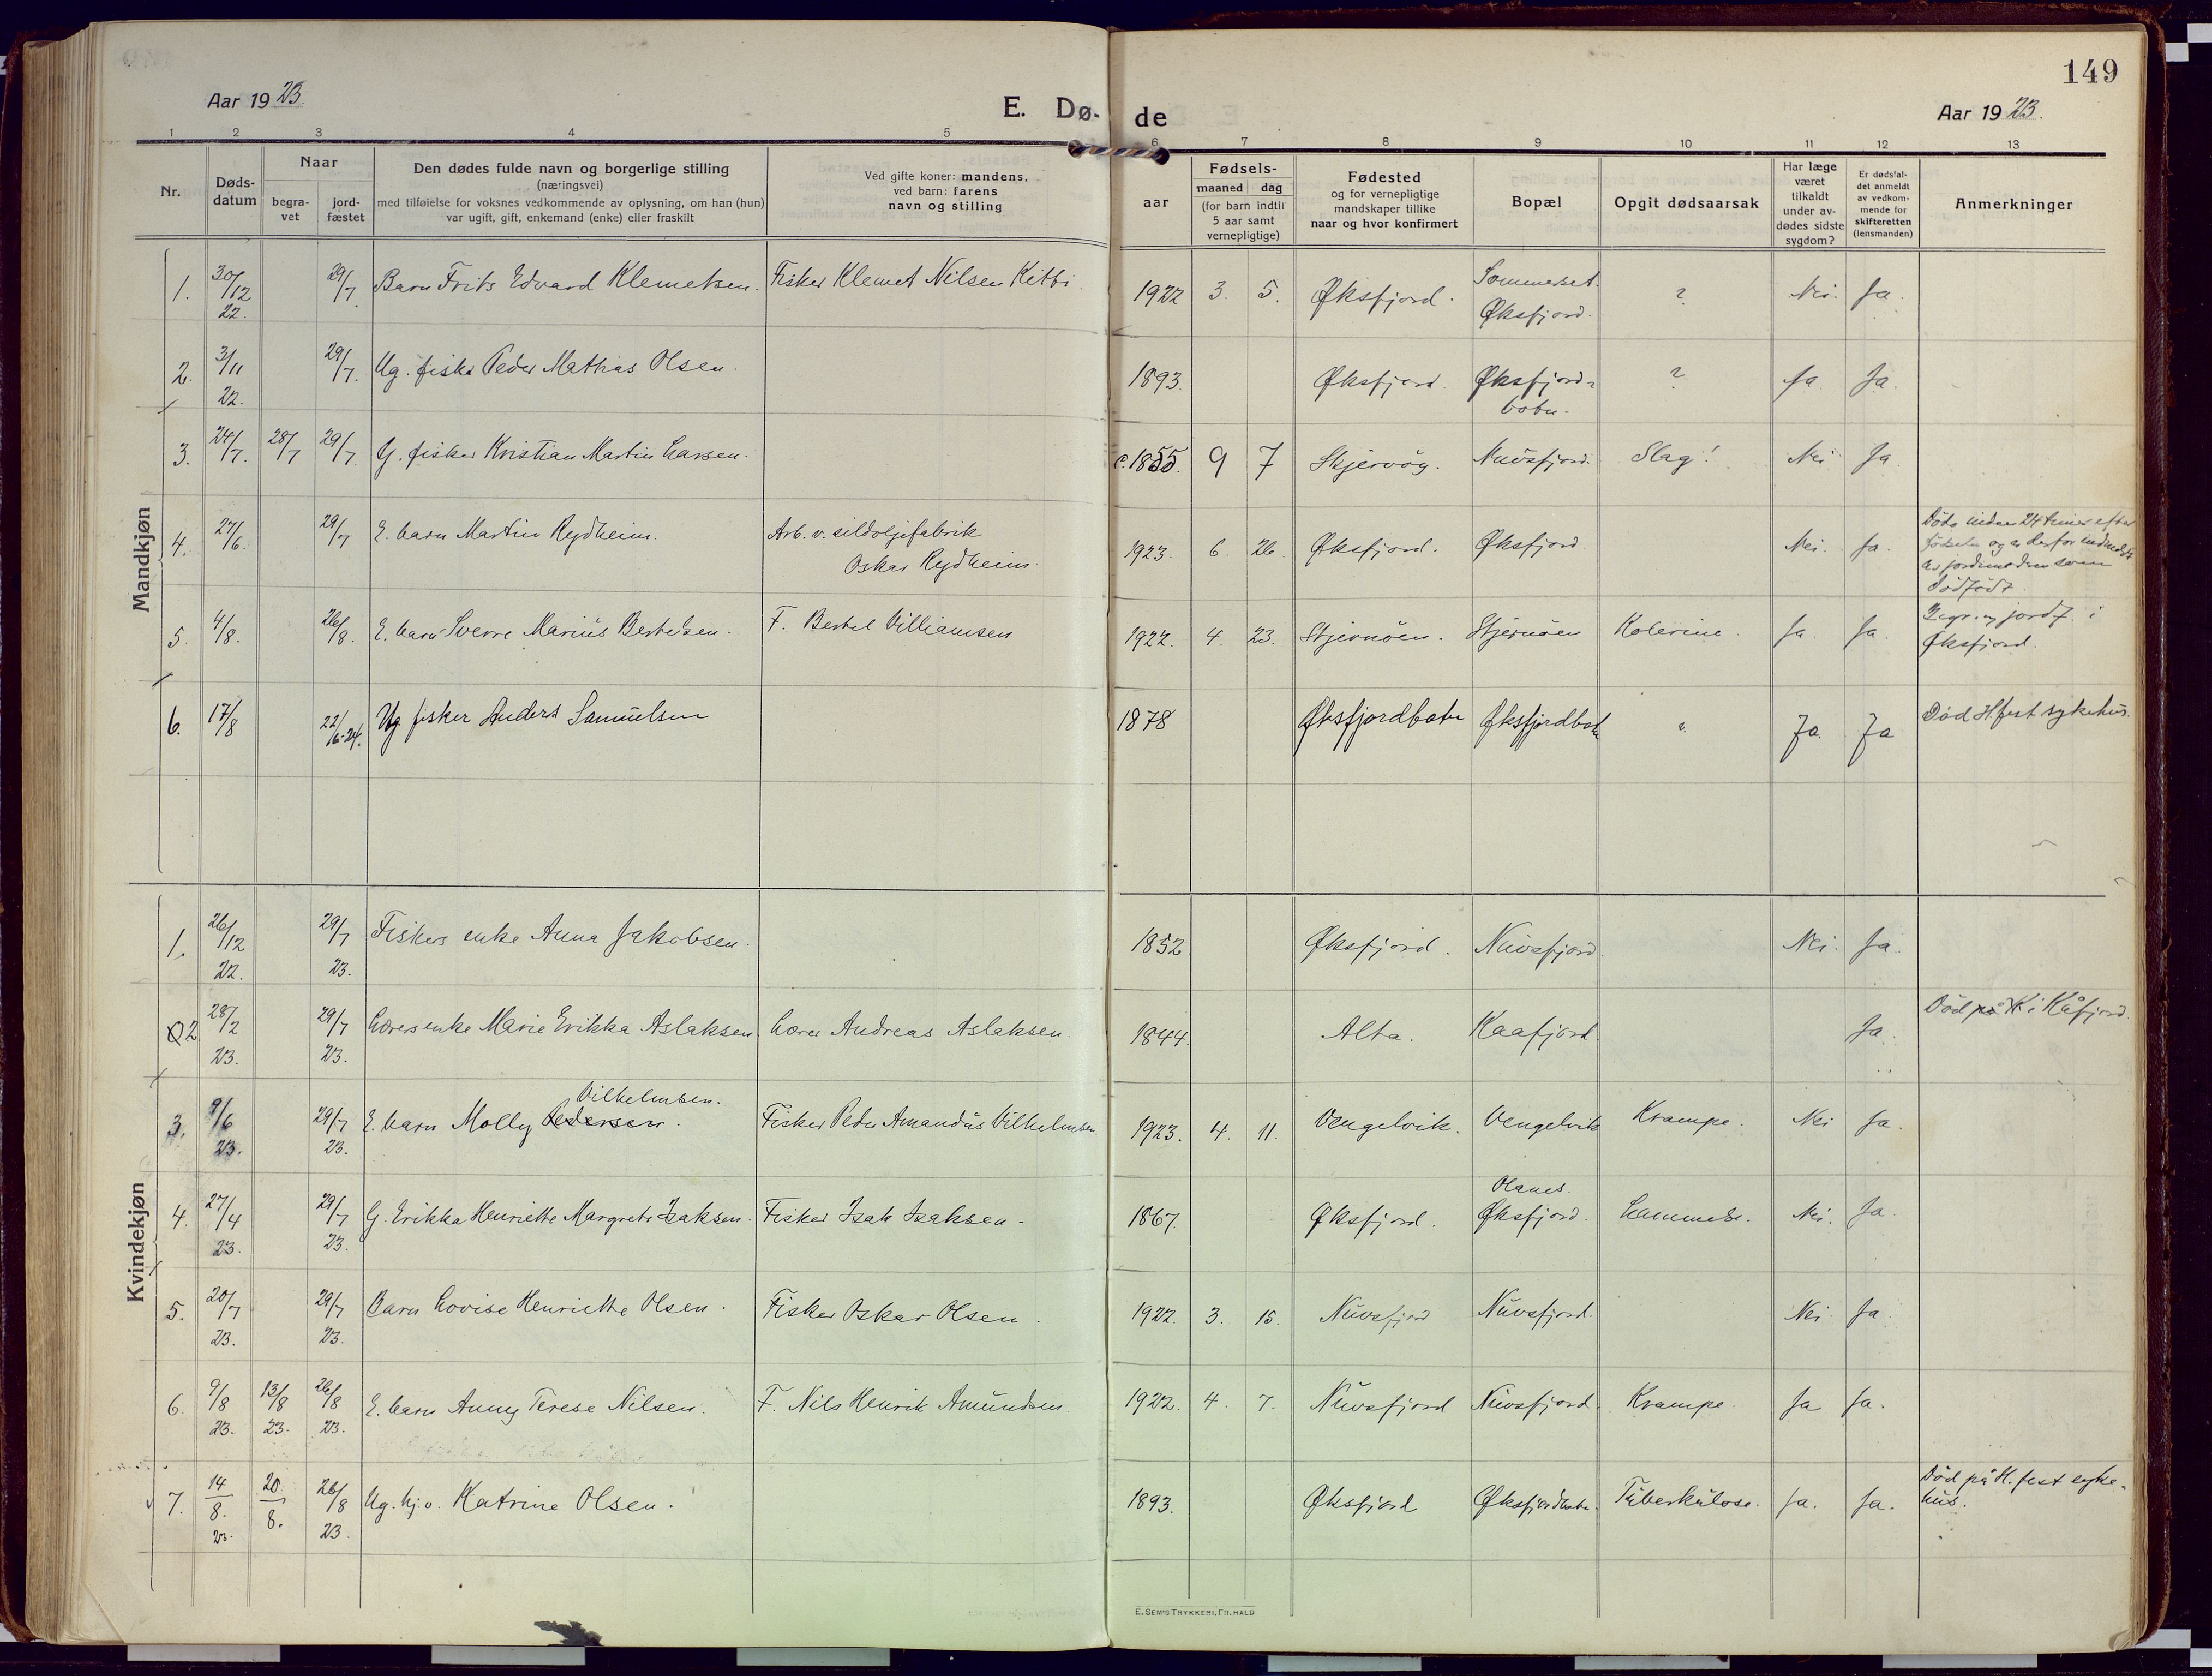 149
Aar 1923.
E. Dø-
de
Aar 1923.
1 2 3 4 5 6 7 8 9 10 11 12 13
Nr.
Døds-
datum
Naar
begra-
vet
jord-
fæstet
Den dødes fulde navn og borgerlige stilling
(næringsvei)
med tilføielse for voksnes vedkommende av oplysning, om han (hun)
var ugift, gift, enkemand (enke) eller fraskilt
Ved gifte koner: mandens,
ved barn: farens
navn og stilling
Fødsels-
aar
maaned dag
(for barn indtil
5 aar samt
vernepligtige)
Fødested
og for vernepligtige
mandskaper tillike
naar og hvor konfirmert
Bopæl
Opgit dødsaarsak
Har læge
været
tilkaldt
under av-
dødes sidste
sygdom?
Er dødsfal-
det anmeldt
av vedkom-
mende for
skifteretten
(lensmanden)
Anmerkninger
Mandkjøn
1. 30/12 22. 29/7. Barn Frits Edvard Klemetsen. Fisker Klemet Nilsen Kitti. 1922 3. 5. Øksfjord. Sommerset. Øksfjord. ? Nei. Ja.
2. 3/11 22. 29/7. Ug. fisker Peder Mathias Olsen. 1893. Øksfjord. Øksfjord-
botn. ? Ja. Ja.
3. 24/7. 28/7 29/7. G. fisker Kristian Martin Larsen. c. 1855. 9 7 Skjervøy. Nuvsfjord. Slag! Nei Ja.
4. 27/6. 29/7 E. barn Martin Rydheim. Arb. v. sildoljefabrik
Oskar Rydheim. 1923. 6. 26. Øksfjord. Øksfjord Nei. Ja. Døde inden 24 timer efter
fødselen og er derfor indmeldt
av jordmoderen som
dødfødt.
5. 4/8. 26/8. E. barn Sverre Marius Bertelsen. F. Bertel Villiamsen 1922. 4. 23. Stjernöen. Stjernöen Kolerine. Ja. Ja. Begr. og jordf. i
Øksfjord.
6. 17/8 22/6-24. Ug fisker Anders Samuelsen 1878 Øksfjordbotn Øksfjordbotn ? Ja. Ja Død H.fest sykehus.
Kvindekjøn
1. 26/12 22. 29/7 23. Fiskers enke Anna Jakobsen. 1852. Øksfjord. Nuvsfjord. Nei. Ja.
2 28/2 23. 29/7 23. Lærers enke Marie Erikka Aslaksen Lærer Andreas Aslaksen. 1844. Alta. Kaafjord. Ja. Død på K i Kåfjord.
Vilhelmsen.
3. 9/6 23. 29/7 23. E. barn Molly Pedersen. Fisker Peder Amandus Vilhelmsen. 1923. 4. 11. Vengelvik. Vengelvik Krampe. Nei Ja.
4. 27/4 23. 29/7 23. G. Erikka Henriette Margrete Isaksen. Fisker Isak Isaksen. 1867. Øksfjord. Olanes. Øksfjord. Lammelse. Nei. Ja.
5. 20/7 23. 29/7 23. Barn Lovise Henriette Olsen. Fisker Oskar Olsen. 1922. 3. 15. Nuvsfjord Nuvsfjord. Nei Ja.
6. 9/8 23. 13/8 23. 26/8 23. E. barn Anny Terese Nilsen. F. Nils Henrik Amundsen 1922. 4. 7. Nuvsfjord Nuvsfjord. Krampe. Ja Ja.
7. 14/8. 23. 20/8. 26/8 23. Ug. hj.v. Katrine Olsen. 1893. Øksfjord Øksfjordbotn. Tuberkulose. Ja. Ja. Død på H.fest syke-
hus.
E. SEM'S TRYKKERI, FR. HALD